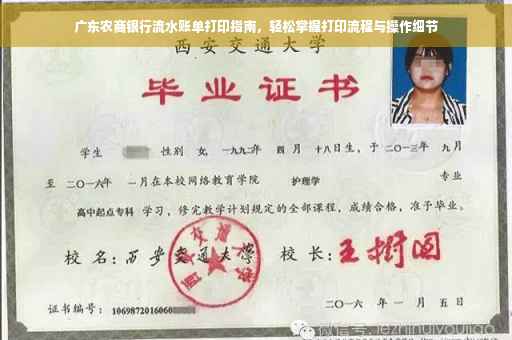 广东农商银行流水账单打印指南，轻松掌握打印流程与操作细节
西安交通大学
毕业证书
学生 性别 女, 一九九二年 四月 十八日生, 于二〇一三年 九月
至 二〇一六年 一月在本校网络教育学院 护理学 专业
高中起点专科 学习, 修完教学计划规定的全部课程, 成绩合格, 准予毕业。
校 名: 西安交通大学 校 长: 王树国
西安交通大学
证书编号: 1069872016060
二〇一六年 一月 五日
微信号: jezhinuiyoujiao